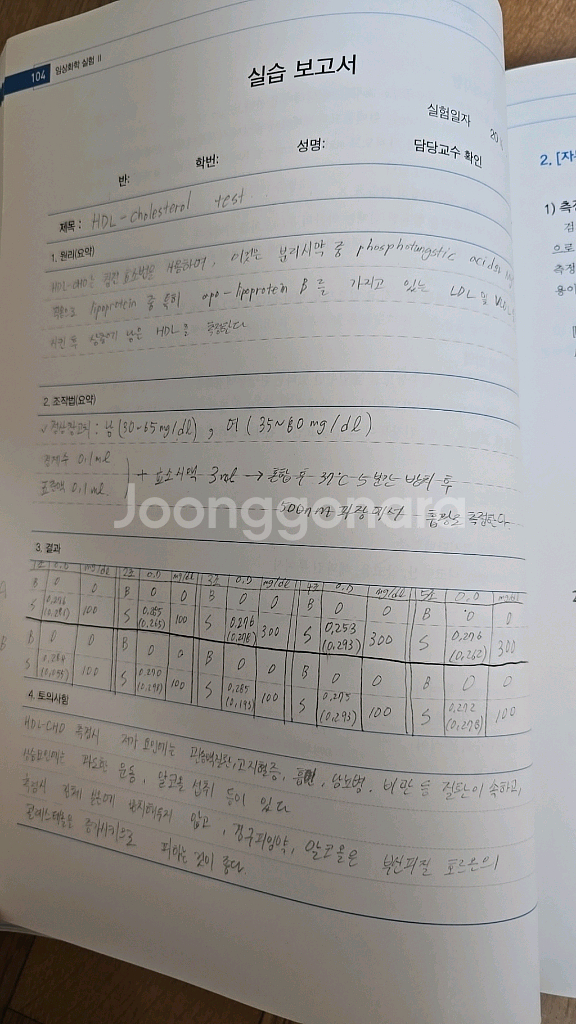 104 임상화학 실험 II
실습 보고서
실험일자 20
반: 학번: 성명: 담당교수 확인
제목: HDL-cholesterol test
1. 원리(요약)
HDL-CHO는 효소법을 사용하며, 이것은 분리시약 중 phosphotungstic acid
lipoprotein 중 특히 apo-lipoprotein B를 가지고 있는 LDL 및
시킨 후 남은 HDL을 측정한다
2. 조작법(요약)
정상참고치: 남(30~65mg/dl), 여(35~80mg/dl)
0.1ml
표준액 0.1ml + 효소시액 3ml → 혼합 후 37℃ 5분간 방치 후
500nm 파장에서 흡광도 측정한다.
Joonggonara
3. 결과
1조 O.D mg/dl 2조 O.D mg/dl 3조 O.D mg/dl 4조 O.D mg/dl 5조 O.D mg/dl
B 0 0 B 0 0 B 0 0 B 0 0 B 0 0
S 100 S 0.285 (0.265) 100 S 0.276 (0.278) 300 S 0.253 (0.293) 300 S 0.276 (0.262) 300
B 0 0 B 0 0 B 0 0 B 0 0 B 0 0
S 0.284 100 S 0.270 100 S 0.285 (0.193) 100 S 0.275 (0.293) 100 S 0.272 (0.278) 100
4. 토의사항
HDL-CHO 측정시 저하 요인에는 관상동맥질환, 고지혈증, 당뇨병, 비만 등 질환이 속하고,
상승요인에는 과도한 운동, 알코올 섭취 등이 있다
측정시 실온에 방치해두지 말고, 경구피임약, 알코올은 부신피질 호르몬의
콜레스테롤을 증가시키므로 피하는 것이 좋다.
2. [자
1) 측정
검
으로
측정
용이